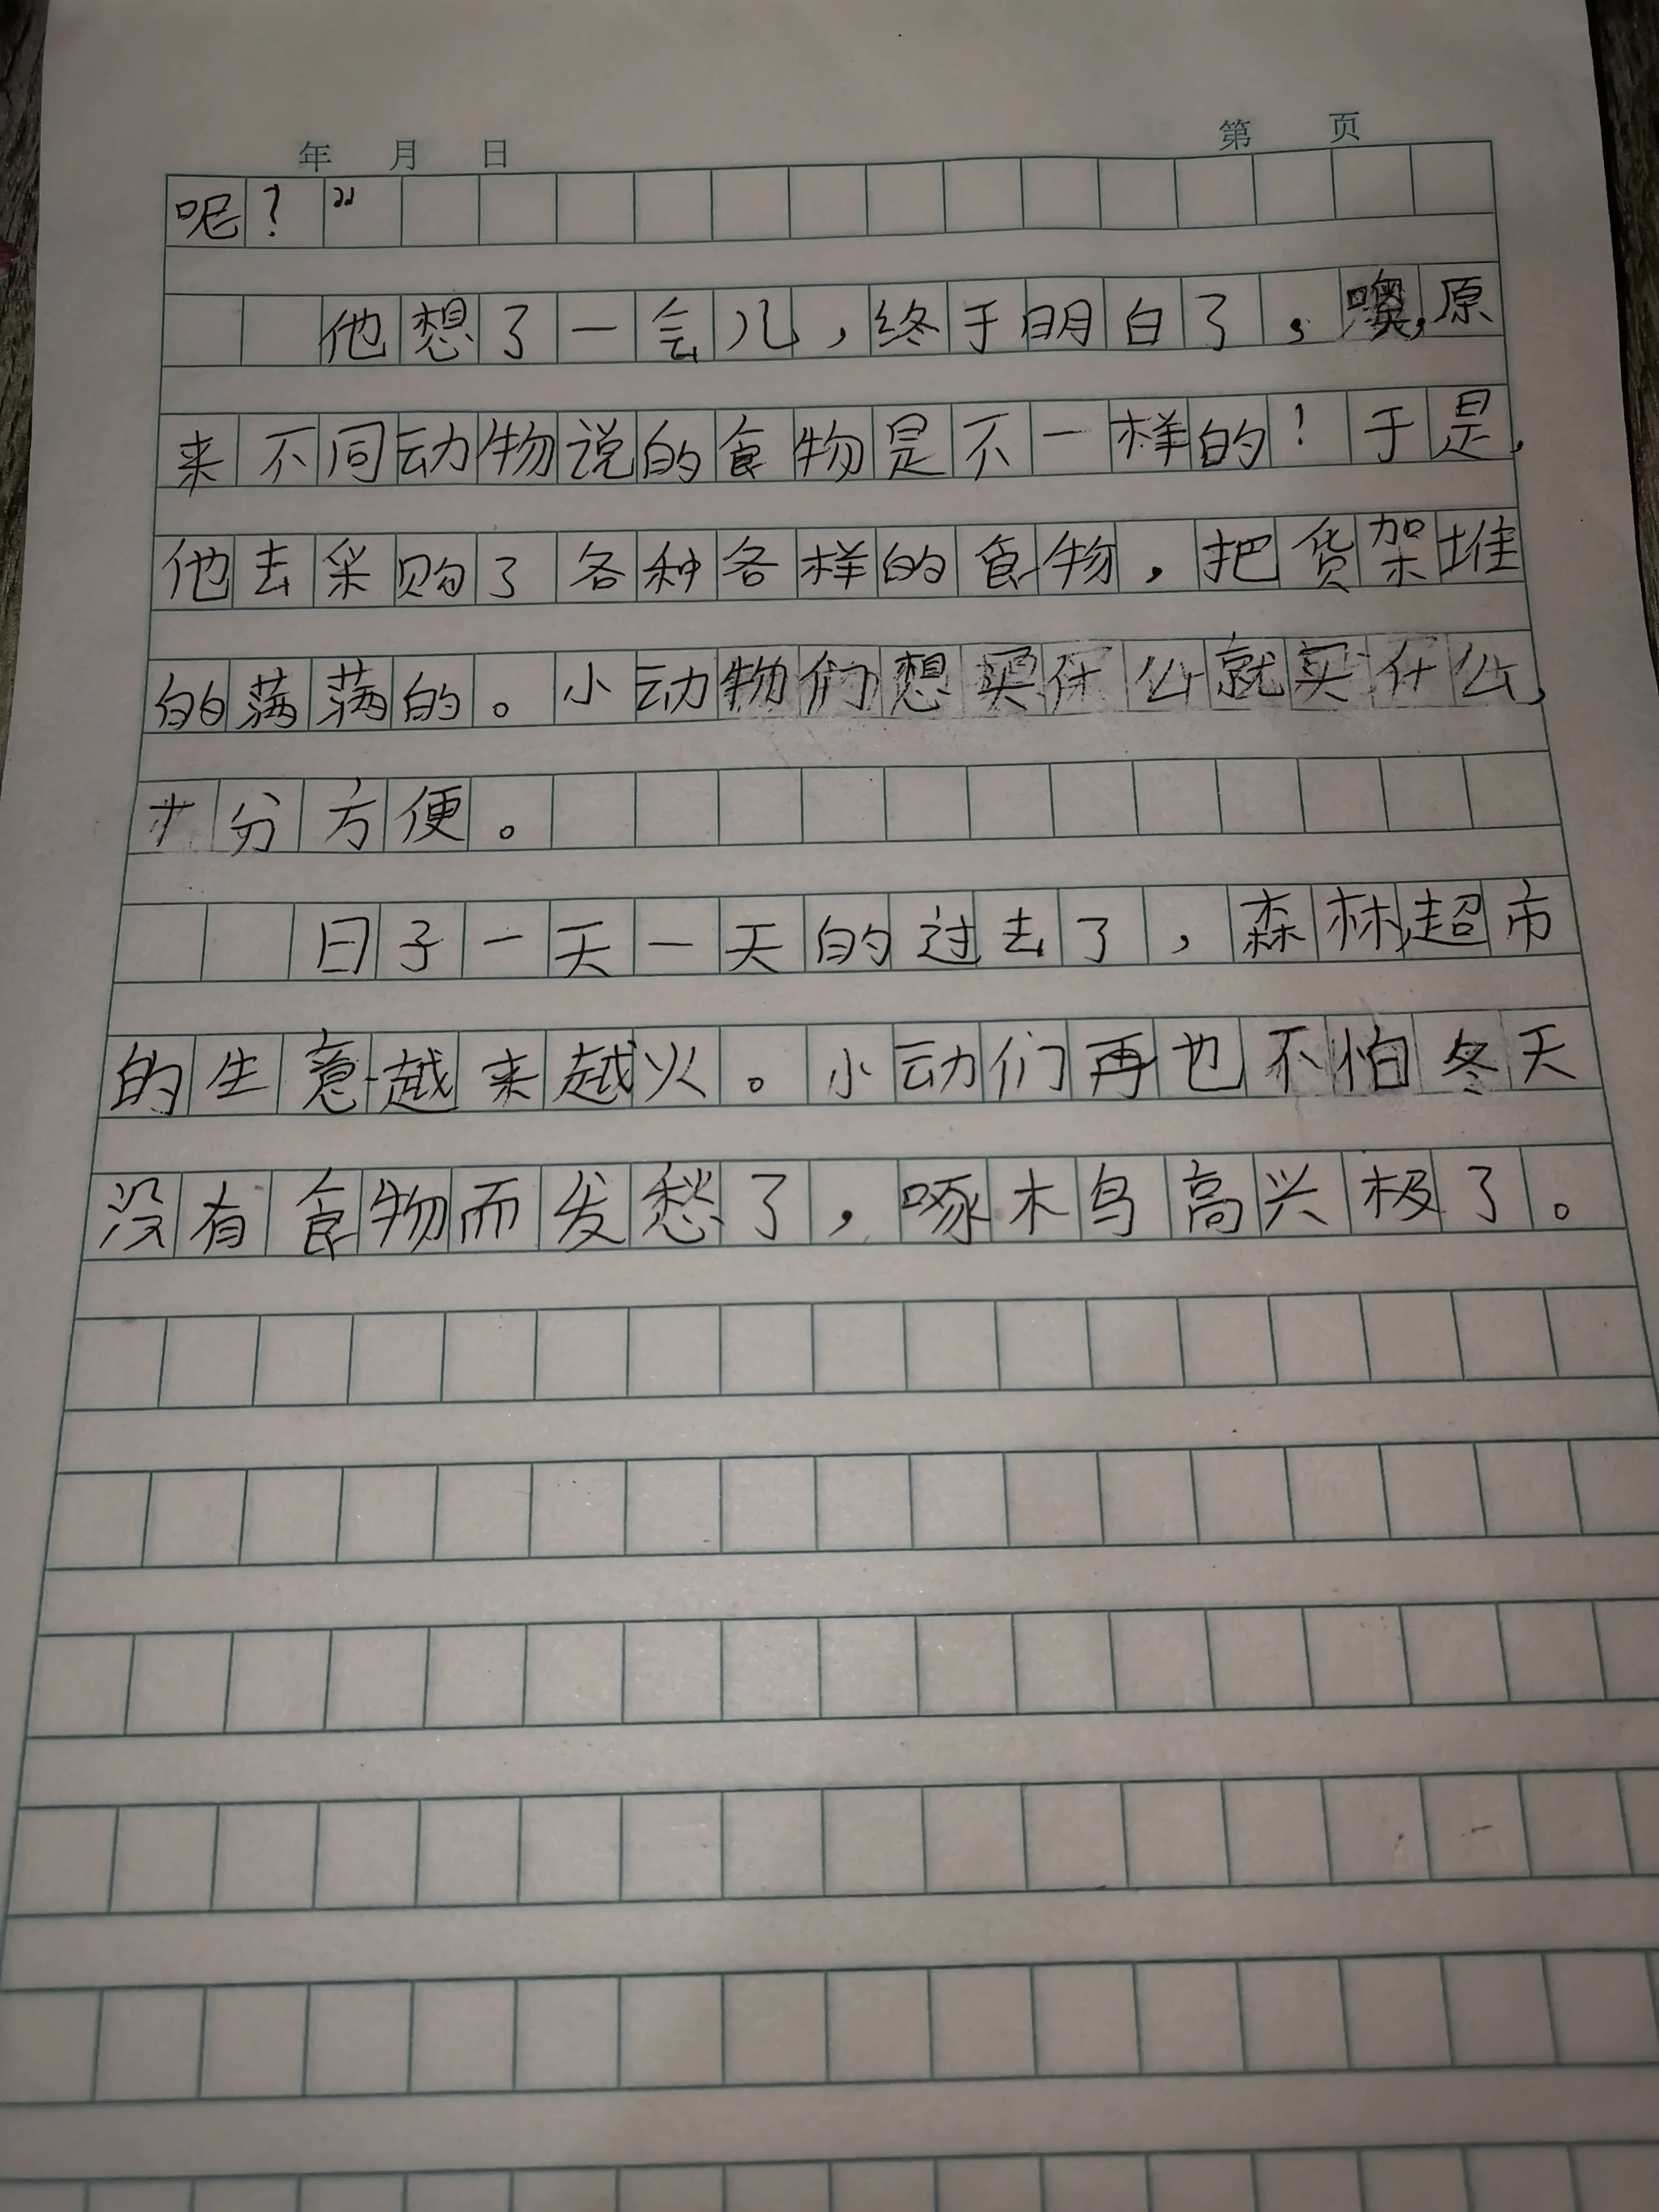 年 月 日 第 页
呢？”
他想了一会儿，终于明白了，噢，原
来不同动物说的食物是不一样的！于是，
他去采购了各种各样的食物，把货架堆
的满满的。小动物们想买什么就买什么，
十分方便。
日子一天一天的过去了，森林超市
的生意越来越火。小动们再也不怕冬天
没有食物而发愁了，啄木鸟高兴极了。